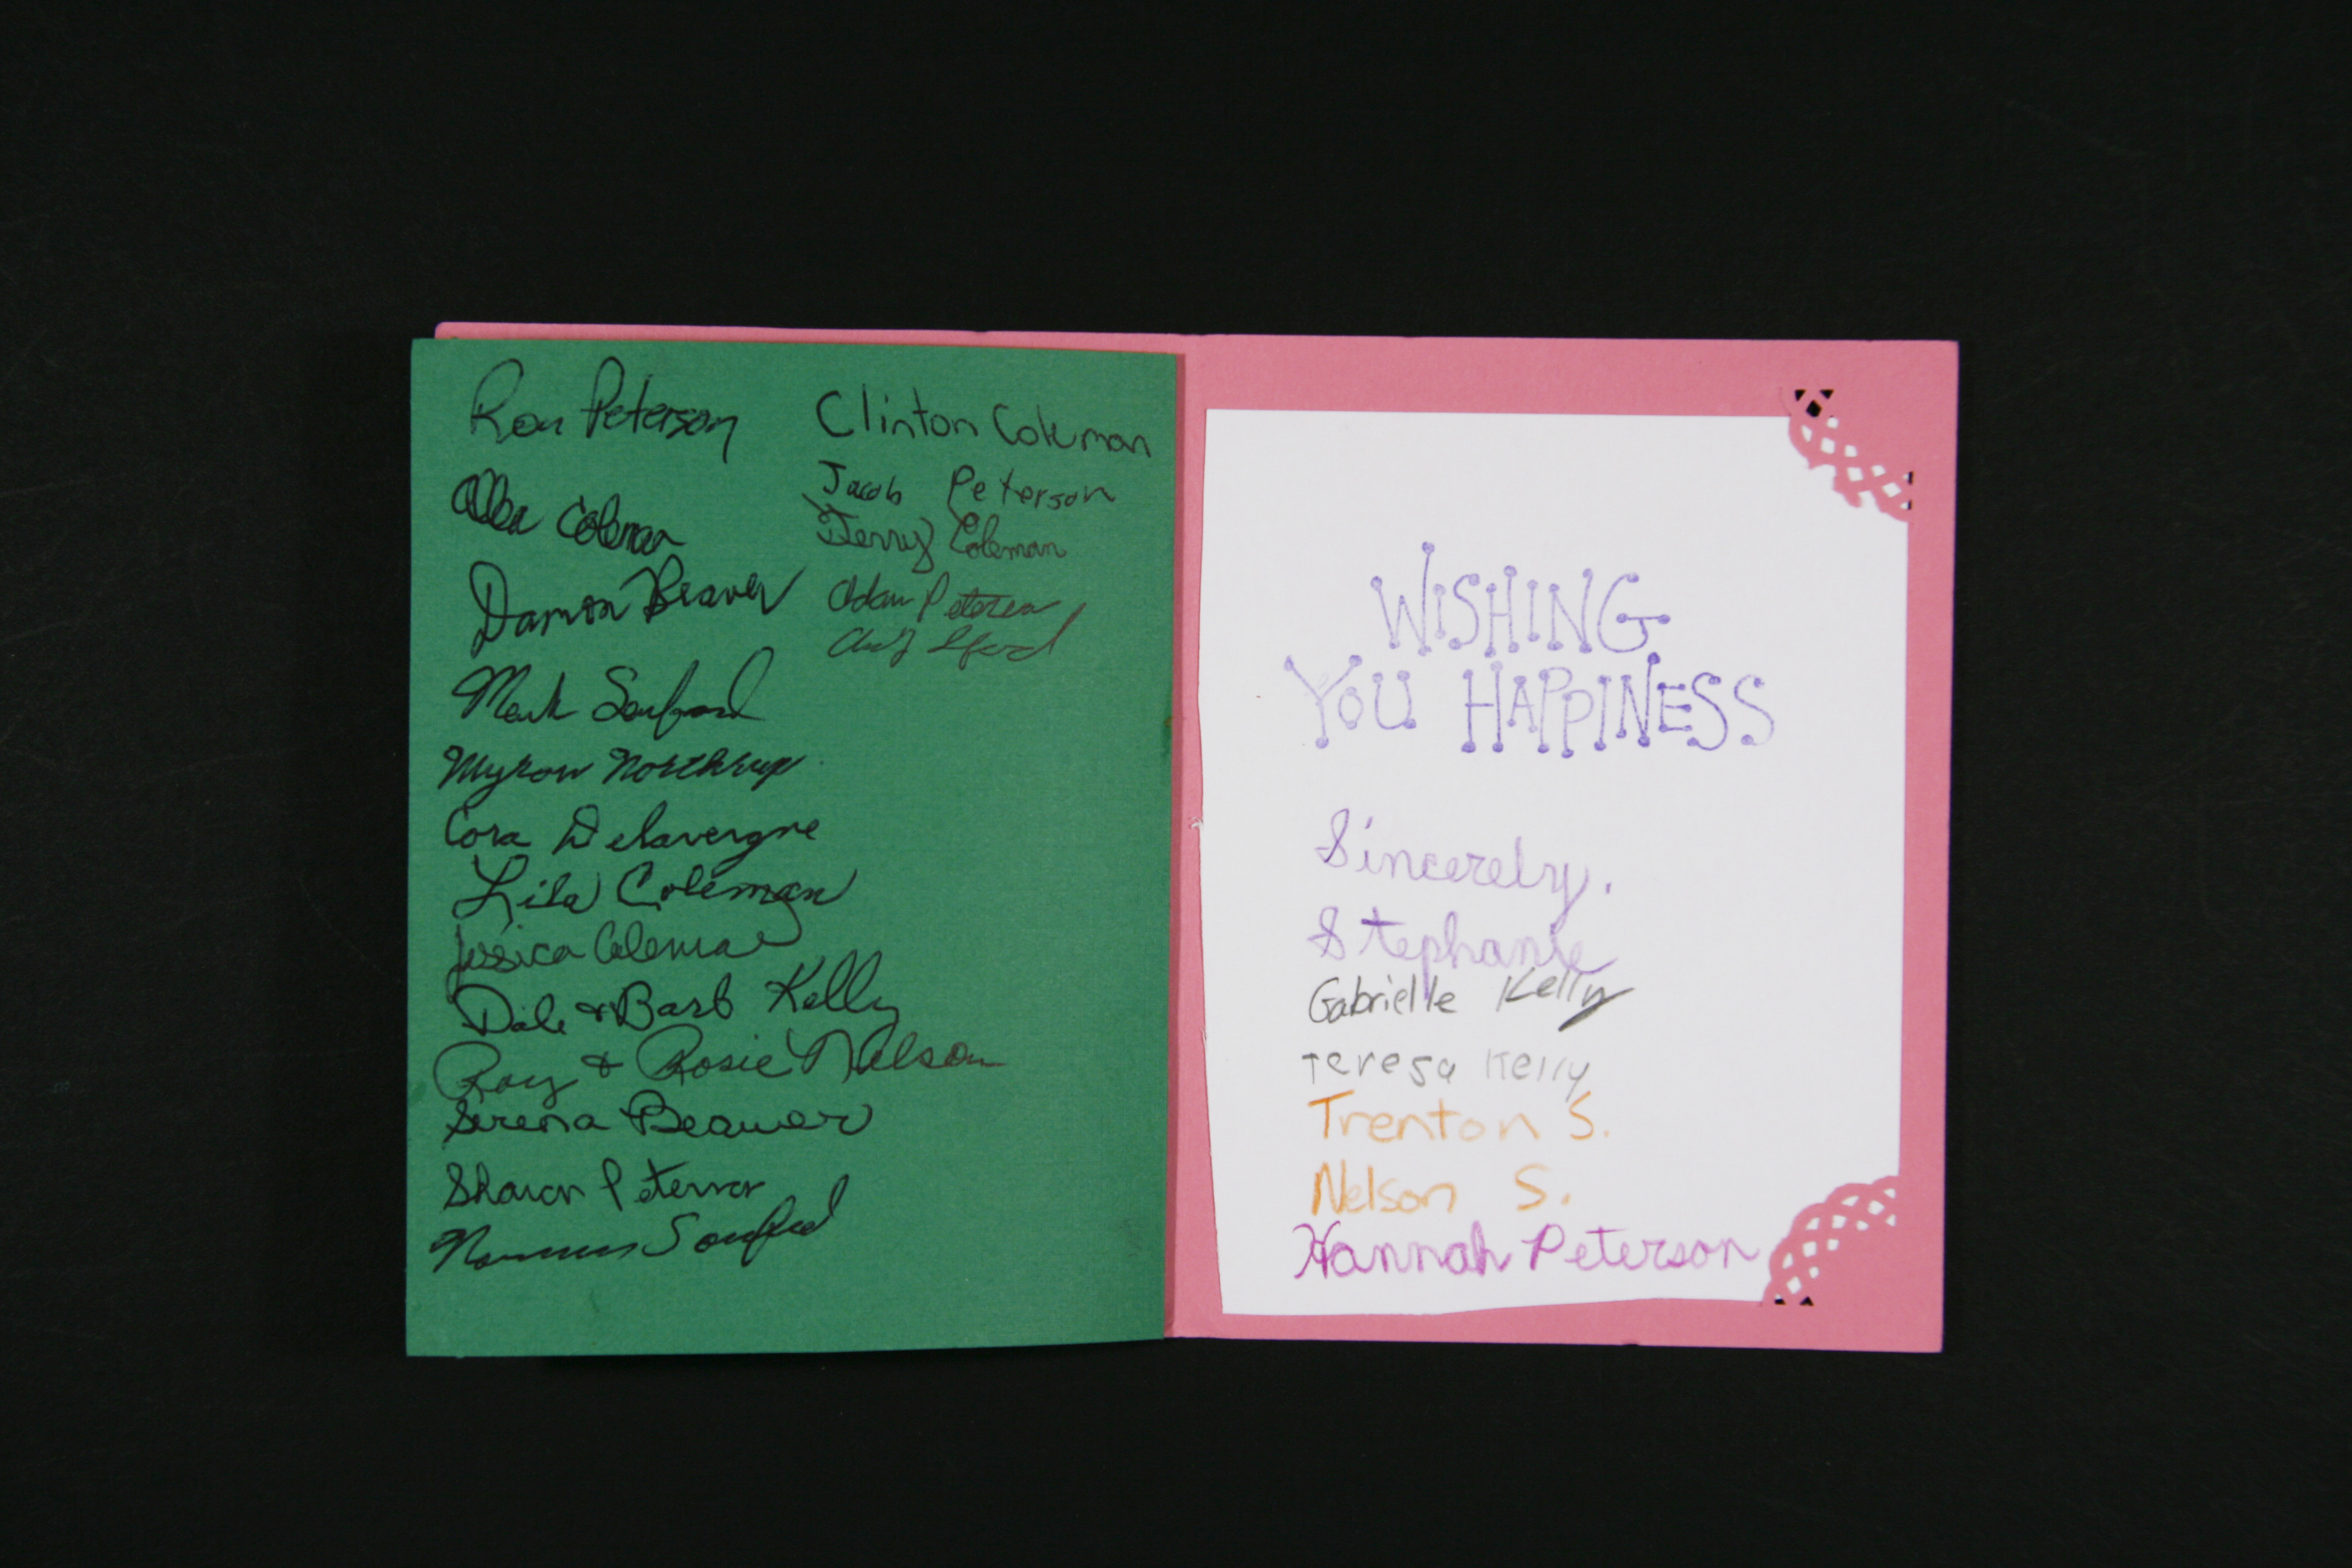 Ron Peterson
Alba Coleman
Damon Beaver
Mark Sanford
Myron Northrup
Cora Delavergne
Lila Coleman
Jessica Coleman
Dale & Barb Kelly
Roy & Rosie Nelson
Serena Beaver
Sharon Peterson
Sanford
Clinton Coleman
Jacob Peterson
Jerry Coleman
Adam Peterson
WISHING
YOU HAPPINESS
Sincerely,
Stephanie
Gabrielle Kelly
Teresa Kelly
Trenton S.
Nelson S.
Hannah Peterson